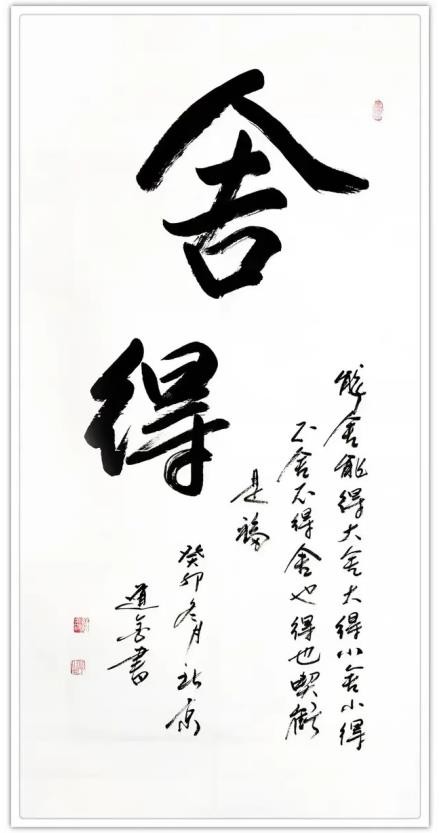 舍
得
能舍能得大舍大得小舍小得
不舍不得舍也得也喫虧
是福
癸卯冬月北京
道書